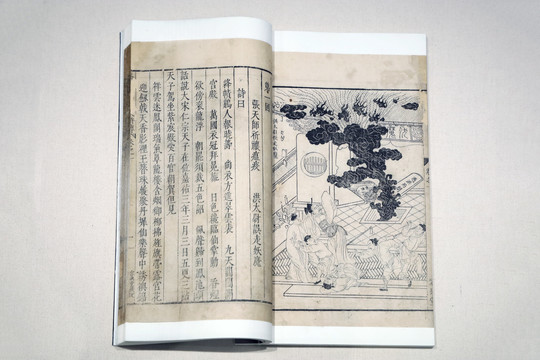 第一回
張天師祈禳瘟疫 洪太尉誤走妖魔
詩曰
絳幘鷄人報曉籌 尚衣方進翠雲裘 九天閶闔開
宮殿 萬國衣冠拜冕旒 日色纔臨仙掌動 香烟
欲傍袞龍浮 朝罷須裁五色詔 佩聲歸到鳳池頭
話說大宋仁宗天子在位嘉祐三年三月三日五更三點
天子駕坐紫宸殿受百官朝賀但見
祥雲迷鳳閣瑞氣罩龍樓含烟御柳拂旌旗帶露宮花
迎劍戟天香影裡玉簪珠履聚丹墀仙樂聲中繡襖